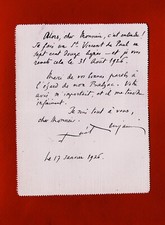 Alors, cher Monsieur, c'est entendu!
Je fais un St Vincent de Paul en
sept cent douze lignes — et je vous
remets cela le 31 Août 1926.
Merci de vos bonnes paroles à
l'égard de mon Votre
avis m'importait, et il me touche
infiniment.
Je suis tout à vous,
cher Monsieur.
Le 17 Janvier 1926.